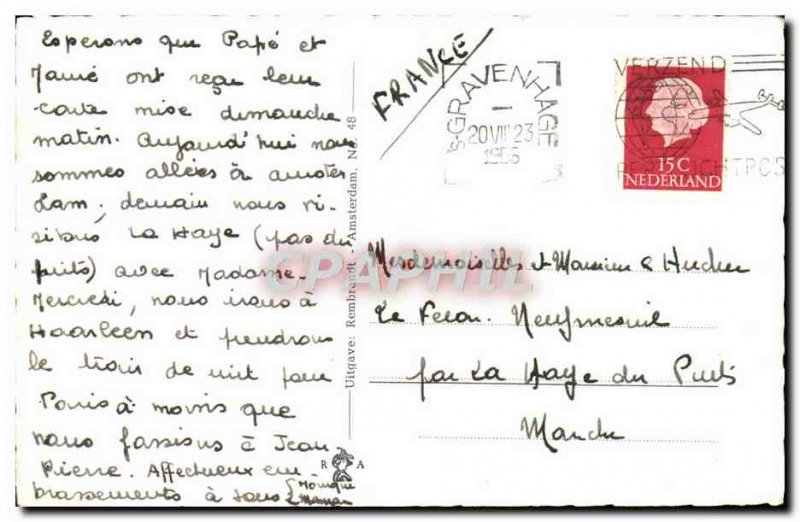 Esperons que Papé et
Mamé ont reçu leur
carte mise dimanche
matin. Aujourd'hui nous
sommes allées à amster
dam, demain nous vi-
sitons La Haye (pas du
puits) avec Madame.
Mercredi, nous irons à
Haarleem et prendrons
le train de nuit pour
Paris à moins que
nous passions à Jean
Pierre. Affectueux em
brassements à tous
Monique
Maman
Uitgave: Rembrandt - Amsterdam. No. 48
R A
FRANCE
's-GRAVENHAGE
20 VII 23
1956
VERZEND
PER LUCHTPOS
15 C
NEDERLAND
Mesdemoiselles et Monsieur
Neufmesnil
par La Haye du Puits
Manche
CPAPHIL